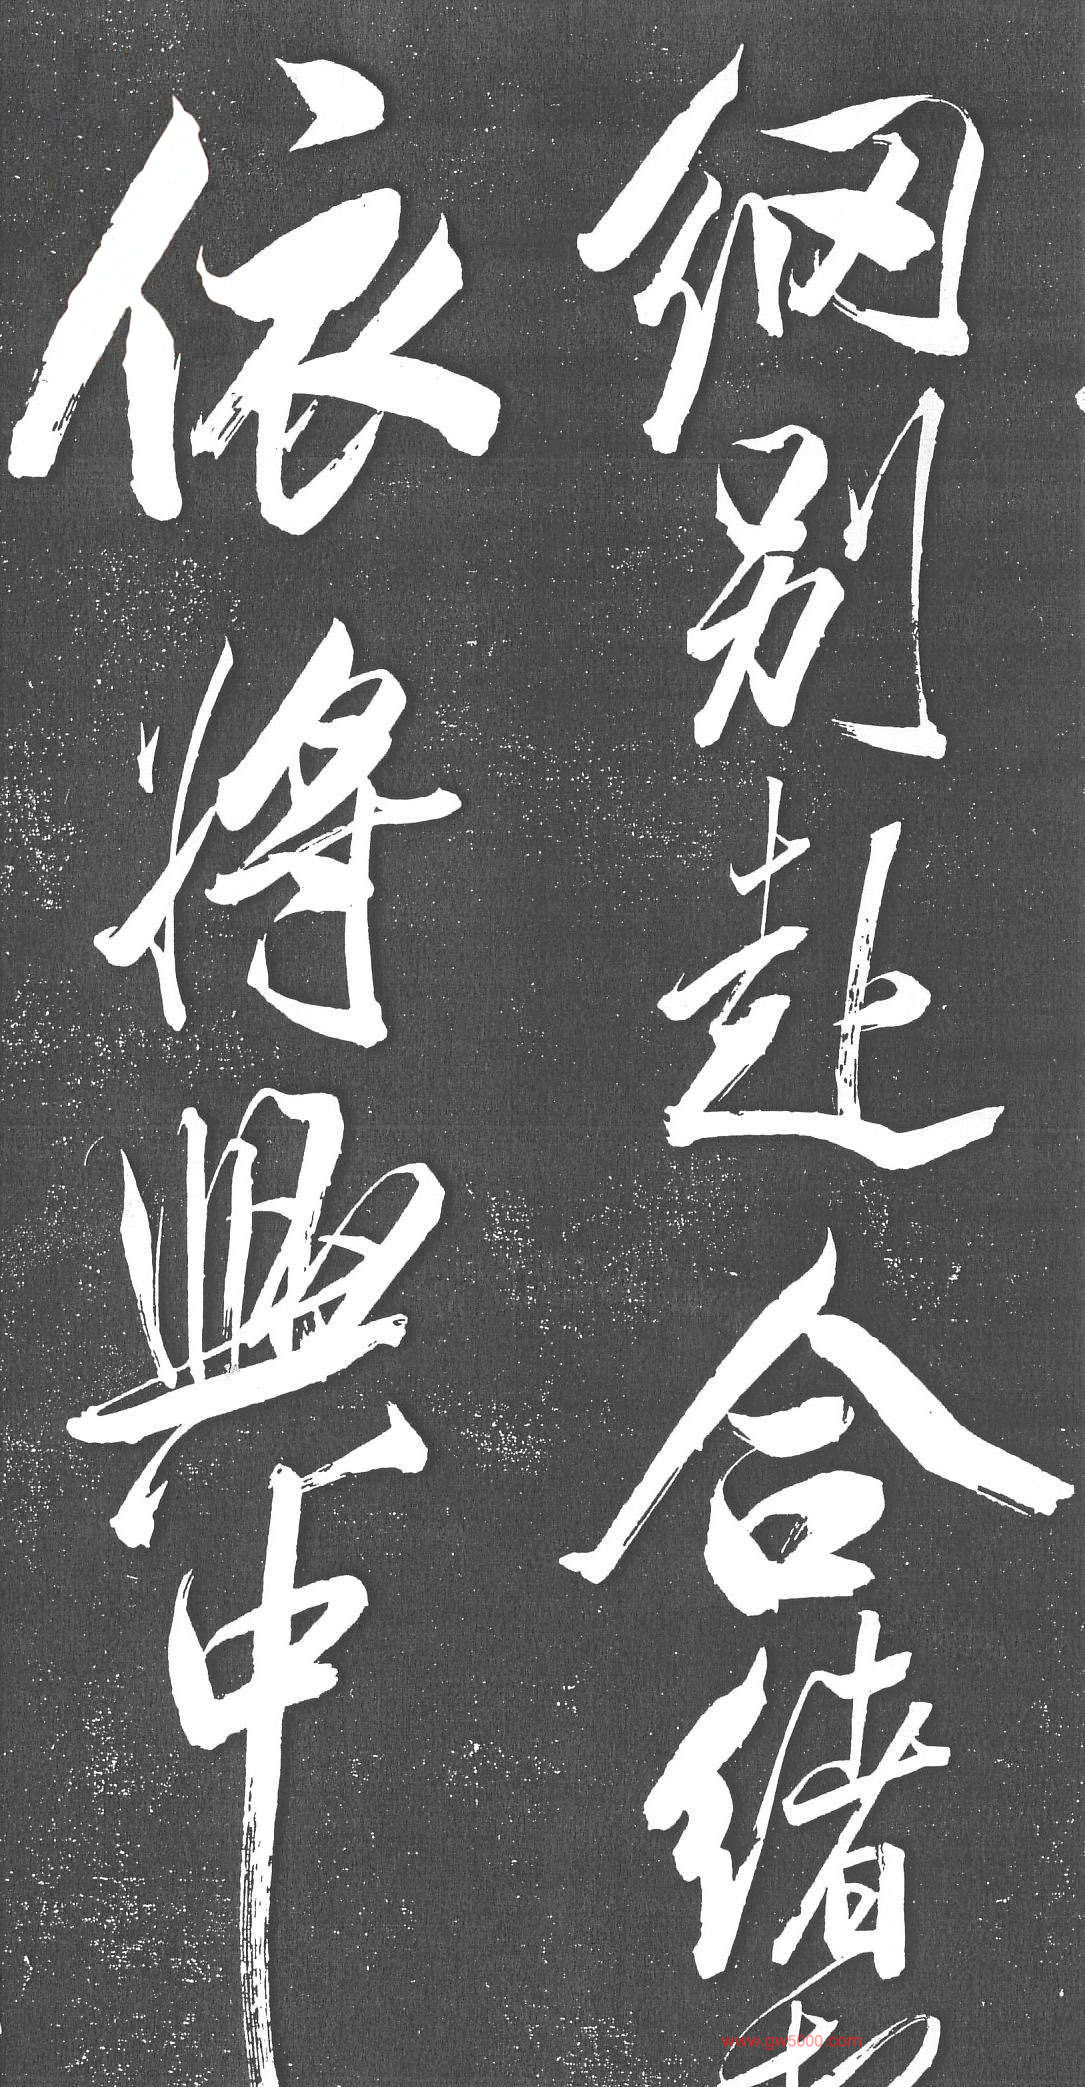 别赴合緒
依將興中
www.gw5000.com